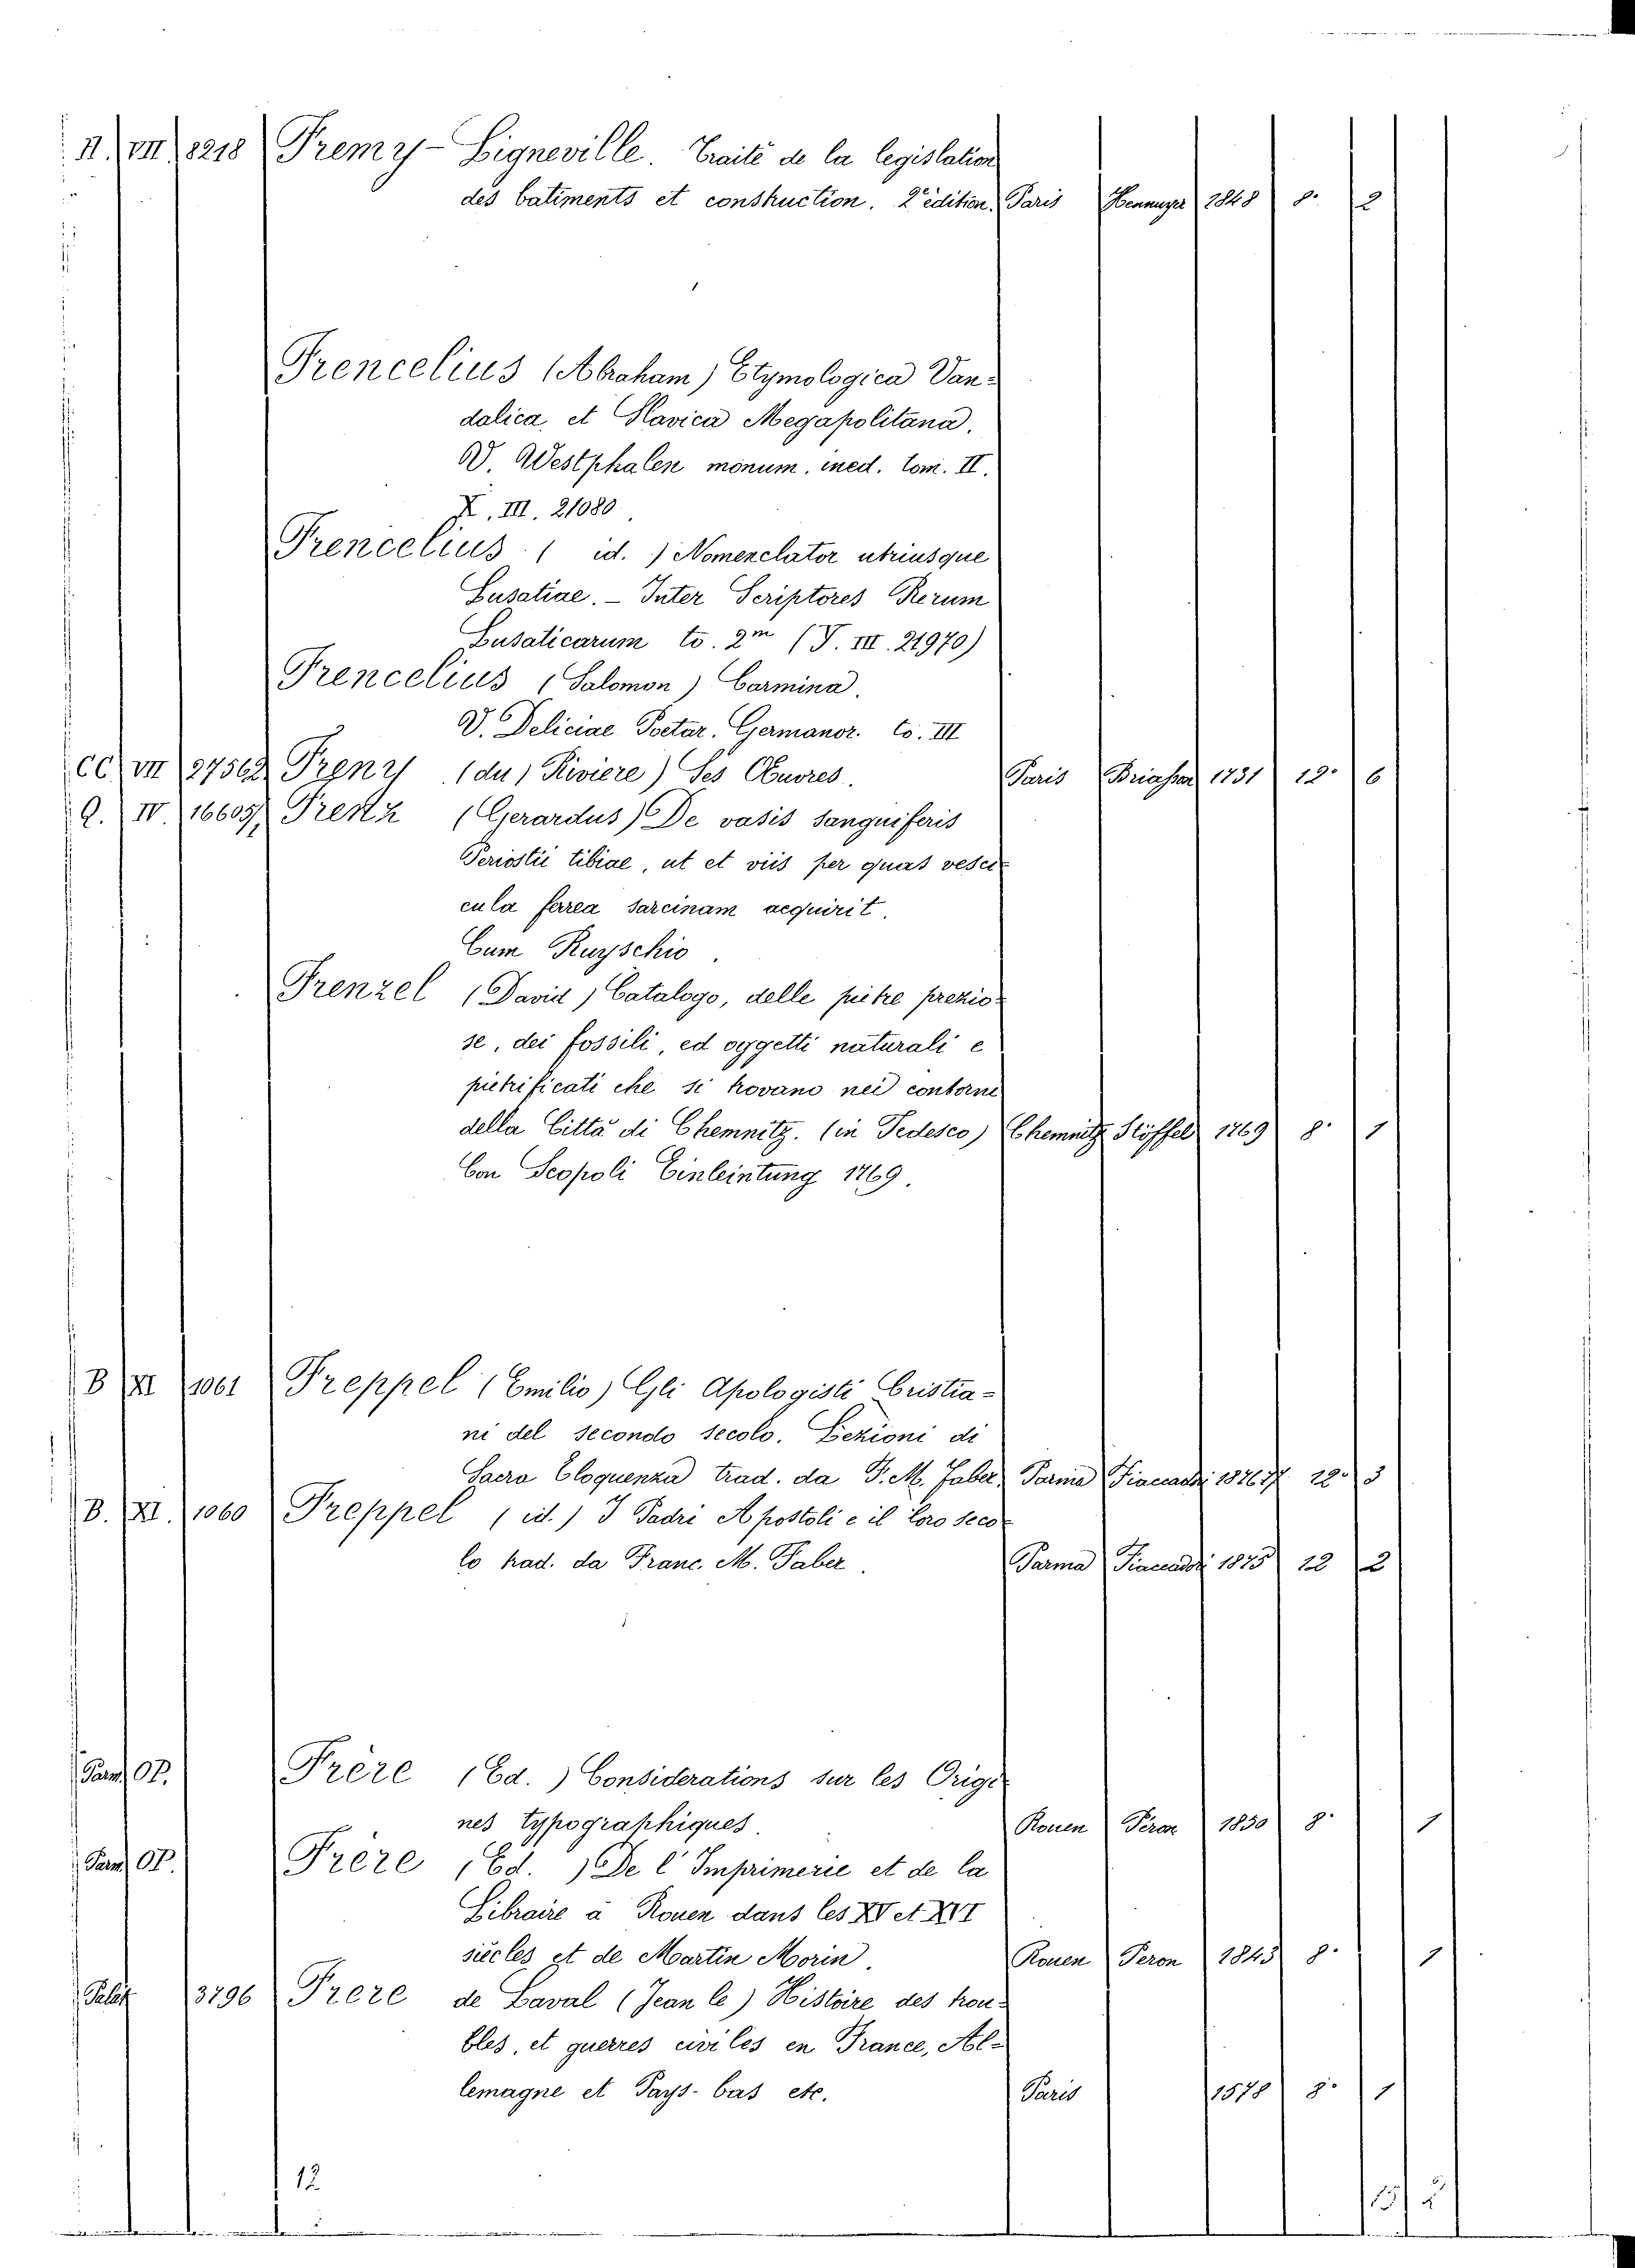 II. VII 8218 Fremy-Ligneville. Traité de la legislation
des batiments et construction. 2e édition. Paris Hennuyer 1848 8° 2
Frencelius (Abraham) Etymologica Van-
dalica, et Slavica Megapolitana.
V. Westphalen monum. ined. tom. II.
X. III. 21080
Frencelius ( id. ) Nomenclator utriusque
Lusatiae. - Inter Scriptores Rerum
Lusaticarum to. 2m (V. III. 21970)
Frencelius (Salomon) Carmina.
V. Deliciae Poetar. Germanor. to. III
CC. VII 27562 Freny (du) Riviere) Ses Obuvres. Paris Briasson 1731 12° 6
Q. IV 16605/ Frentz (Gerardus) De vasis sanguiferis
Periostii tibiae, ut et viis per quas vesci-
cula ferrea sarcinam acquirit.
Cum Ruyschio.
Frenzel (David) Catalogo, delle pietre prezio-
se, dei fossili, ed oggetti naturali e
pietrificati che si trovano nei contorni
della Città di Chemnitz. (in Tedesco) Chemnitz Stöffel 1769 8° 1
Con Scopoli Einleintung 1769.
B XI 1061 Freppel (Emilio) Gli Apologisti Cristia-
ni del secondo secolo. Lezioni di
Sacra Eloquenza trad. da F. M. Faber. Parma Fiaccadori 1876.77 12° 3
B. XI. 1060 Freppel ( id. ) I Padri Apostoli e il loro seco-
lo trad. da Franc. M. Faber. Parma Fiaccadori 1875 12 2
Parm OP. Frère (Ed.) Considerations sur les Origi-
nes typographiques. Rouen Péron 1850 8° 1
Parm OP. Frère (Ed. ) De l'Imprimerie et de la
Libraire à Rouen dans les XV et XVI
siècles et de Martin Morin. Rouen Peron 1843 8° 1
Palat 3796 Frere de Laval (Jean le) Histoire des trou-
bles, et guerres civiles en France, Al-
lemagne et Pays-bas etc. Paris 1578 8° 1
12
15 2